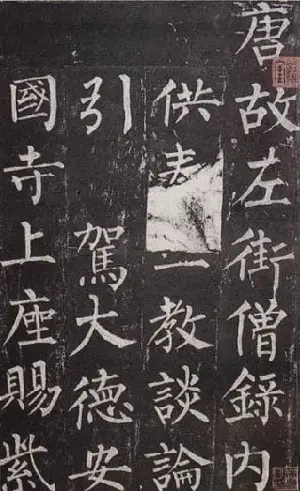 唐故左街僧録内
供 一教談論
引 駕大德安
國寺上座賜紫